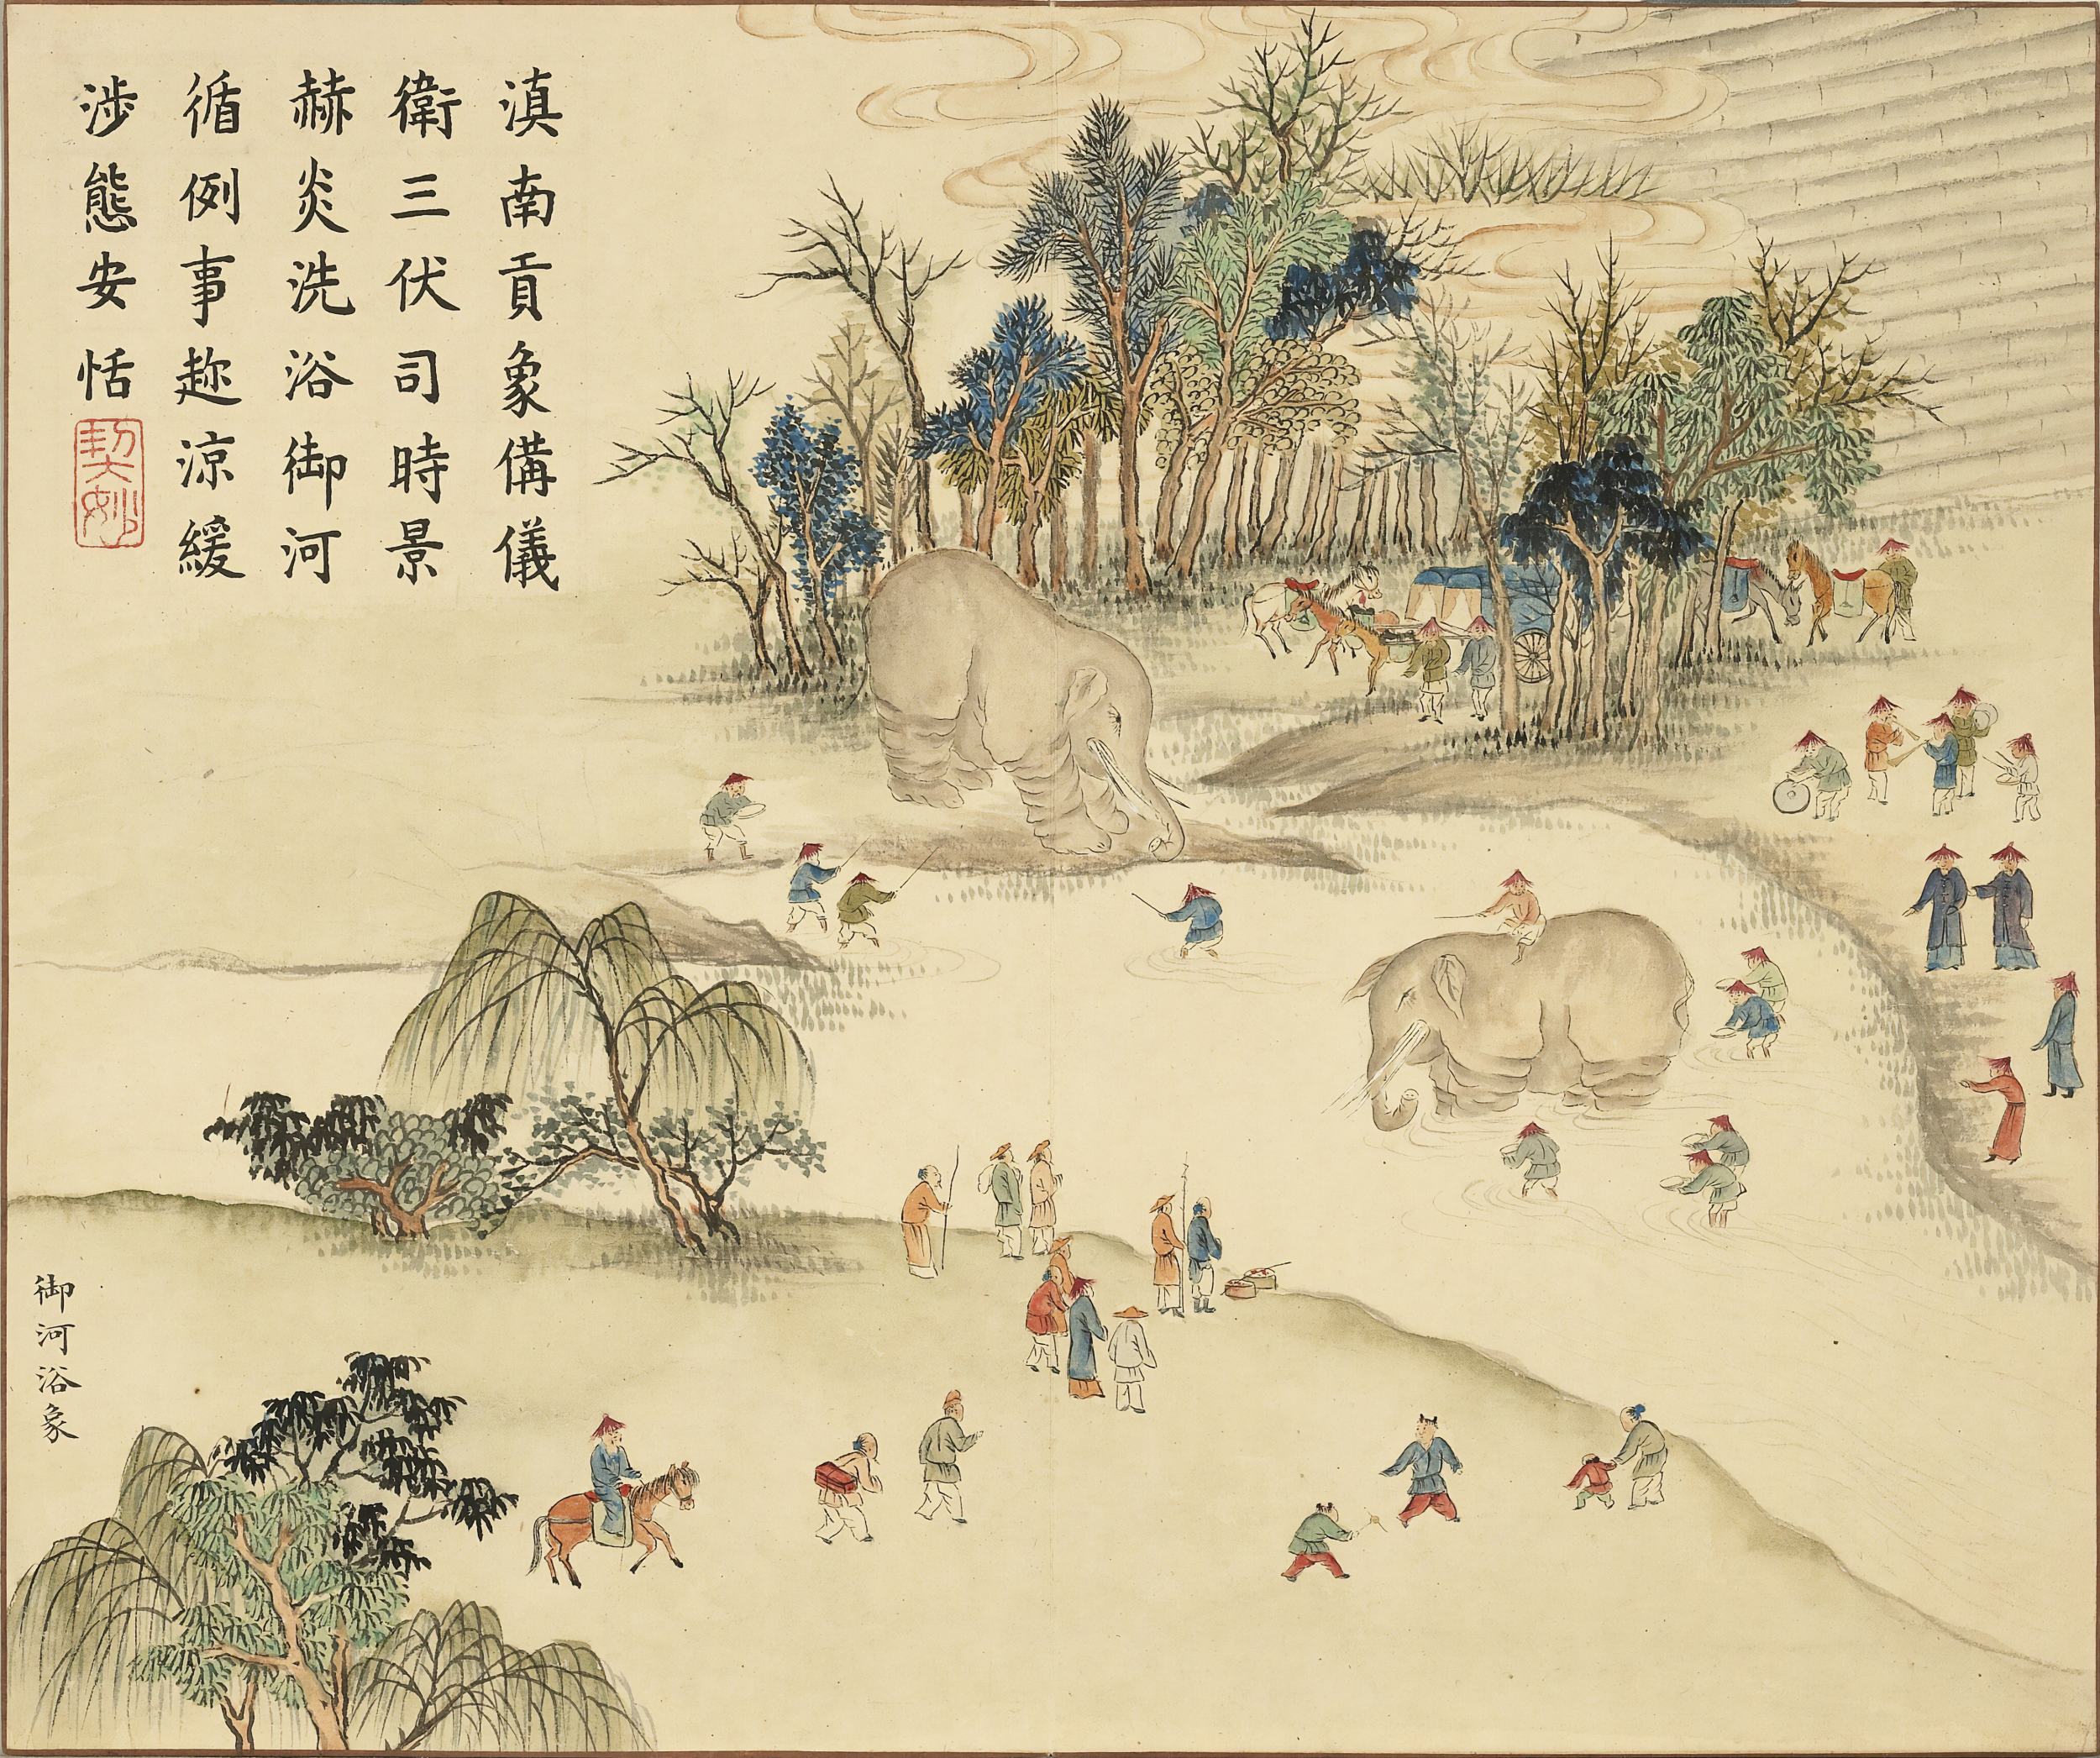 滇南貢象備儀
衛三伏司時景
赫炎洗浴御河
循例事趂涼緩
涉態安恬
契大妙
御河浴象